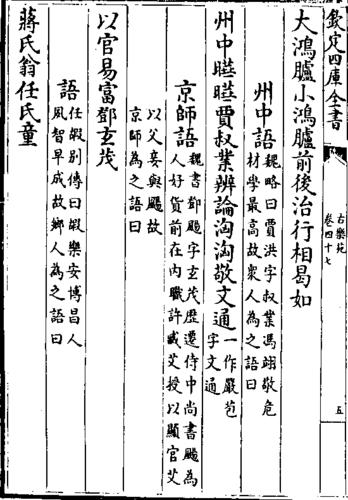 欽定四庫全書
古樂苑
卷四十七
五
大鴻臚小鴻臚前後治行相曷如
州中語
魏略曰賈洪字叔業馮翊敬危
材學最高故衆人為之語曰
州中曄曄賈叔業辨論洶洶敬文通
一作嚴苞
字文通
京師語
魏書鄧颺字玄茂歷遷侍中尚書颺為
人好貨前在内職許臧艾授以顯官艾
以父妾與颺故
京師為之語曰
以官易富鄧玄茂
語
任嘏别傳曰嘏樂安博昌人
夙智早成故鄉人為之語曰
蔣氏翁任氏童